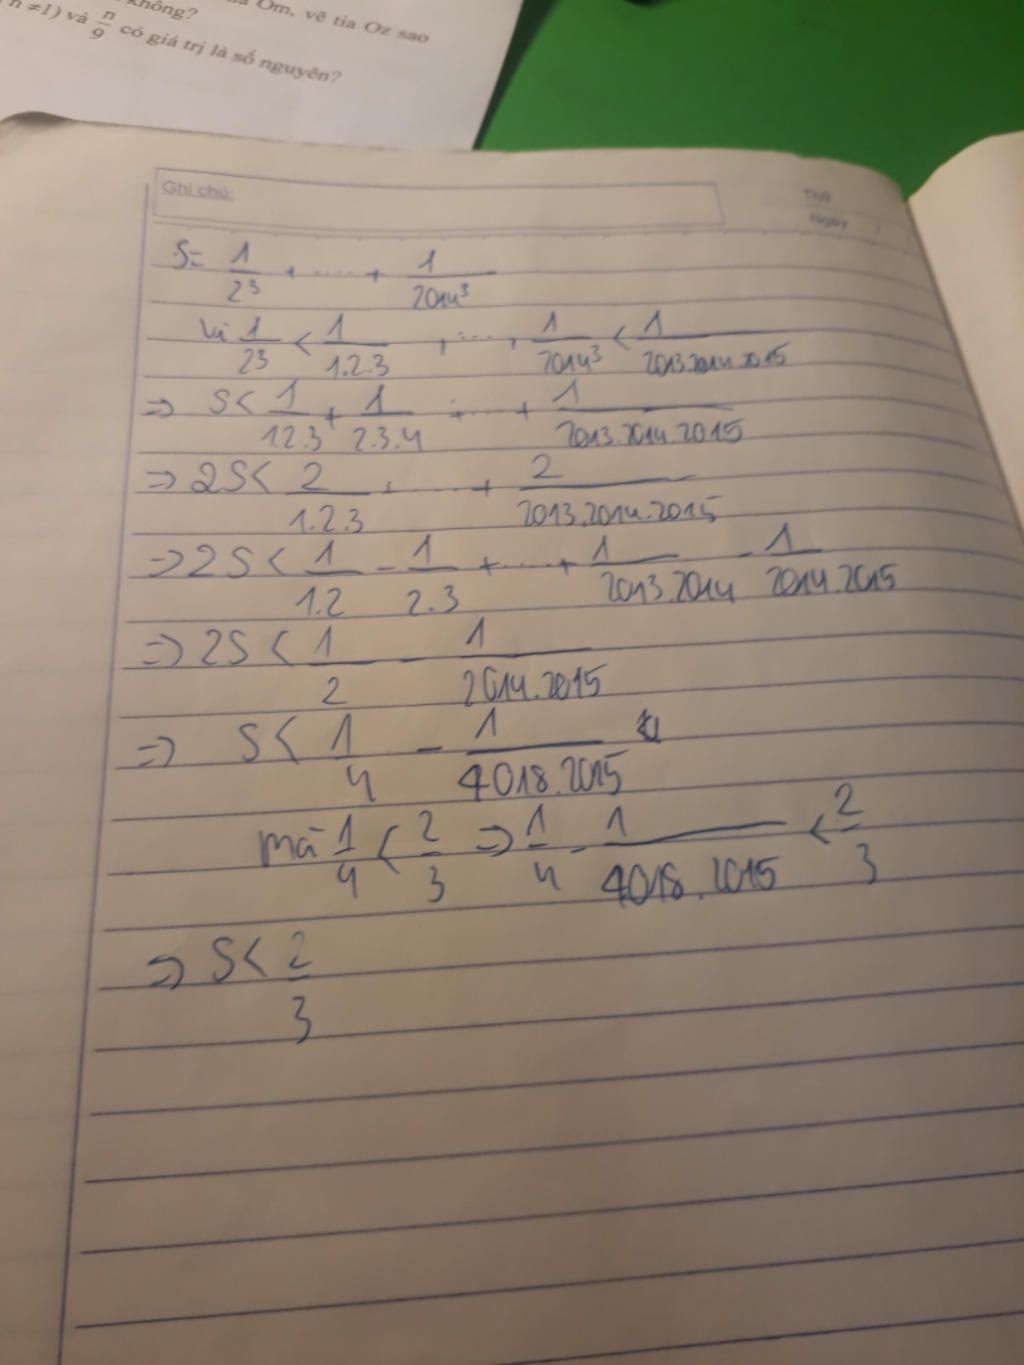 Om, vẽ tia Oz sao
không?
n ≠1) và n/9 có giá trị là số nguyên?
Ghi chú:
Thứ
Ngày
S= 1/2³ + ..... + 1/2014³
Vì 1/2³ < 1/1.2.3 , ....., 1/2014³ < 1/2013.2014.2015
=> S< 1/1.2.3 + 1/2.3.4 + ..... + 1/2013.2014.2015
=> 2S< 2/1.2.3 + ..... + 2/2013.2014.2015
=> 2S < 1/1.2 - 1/2.3 + ..... + 1/2013.2014 - 1/2014.2015
=> 2S < 1/2 - 1/2014.2015
=> S< 1/4 - 1/4018.2015
mà 1/4 < 2/3 => 1/4 - 1/4018.2015 < 2/3
=> S< 2/3